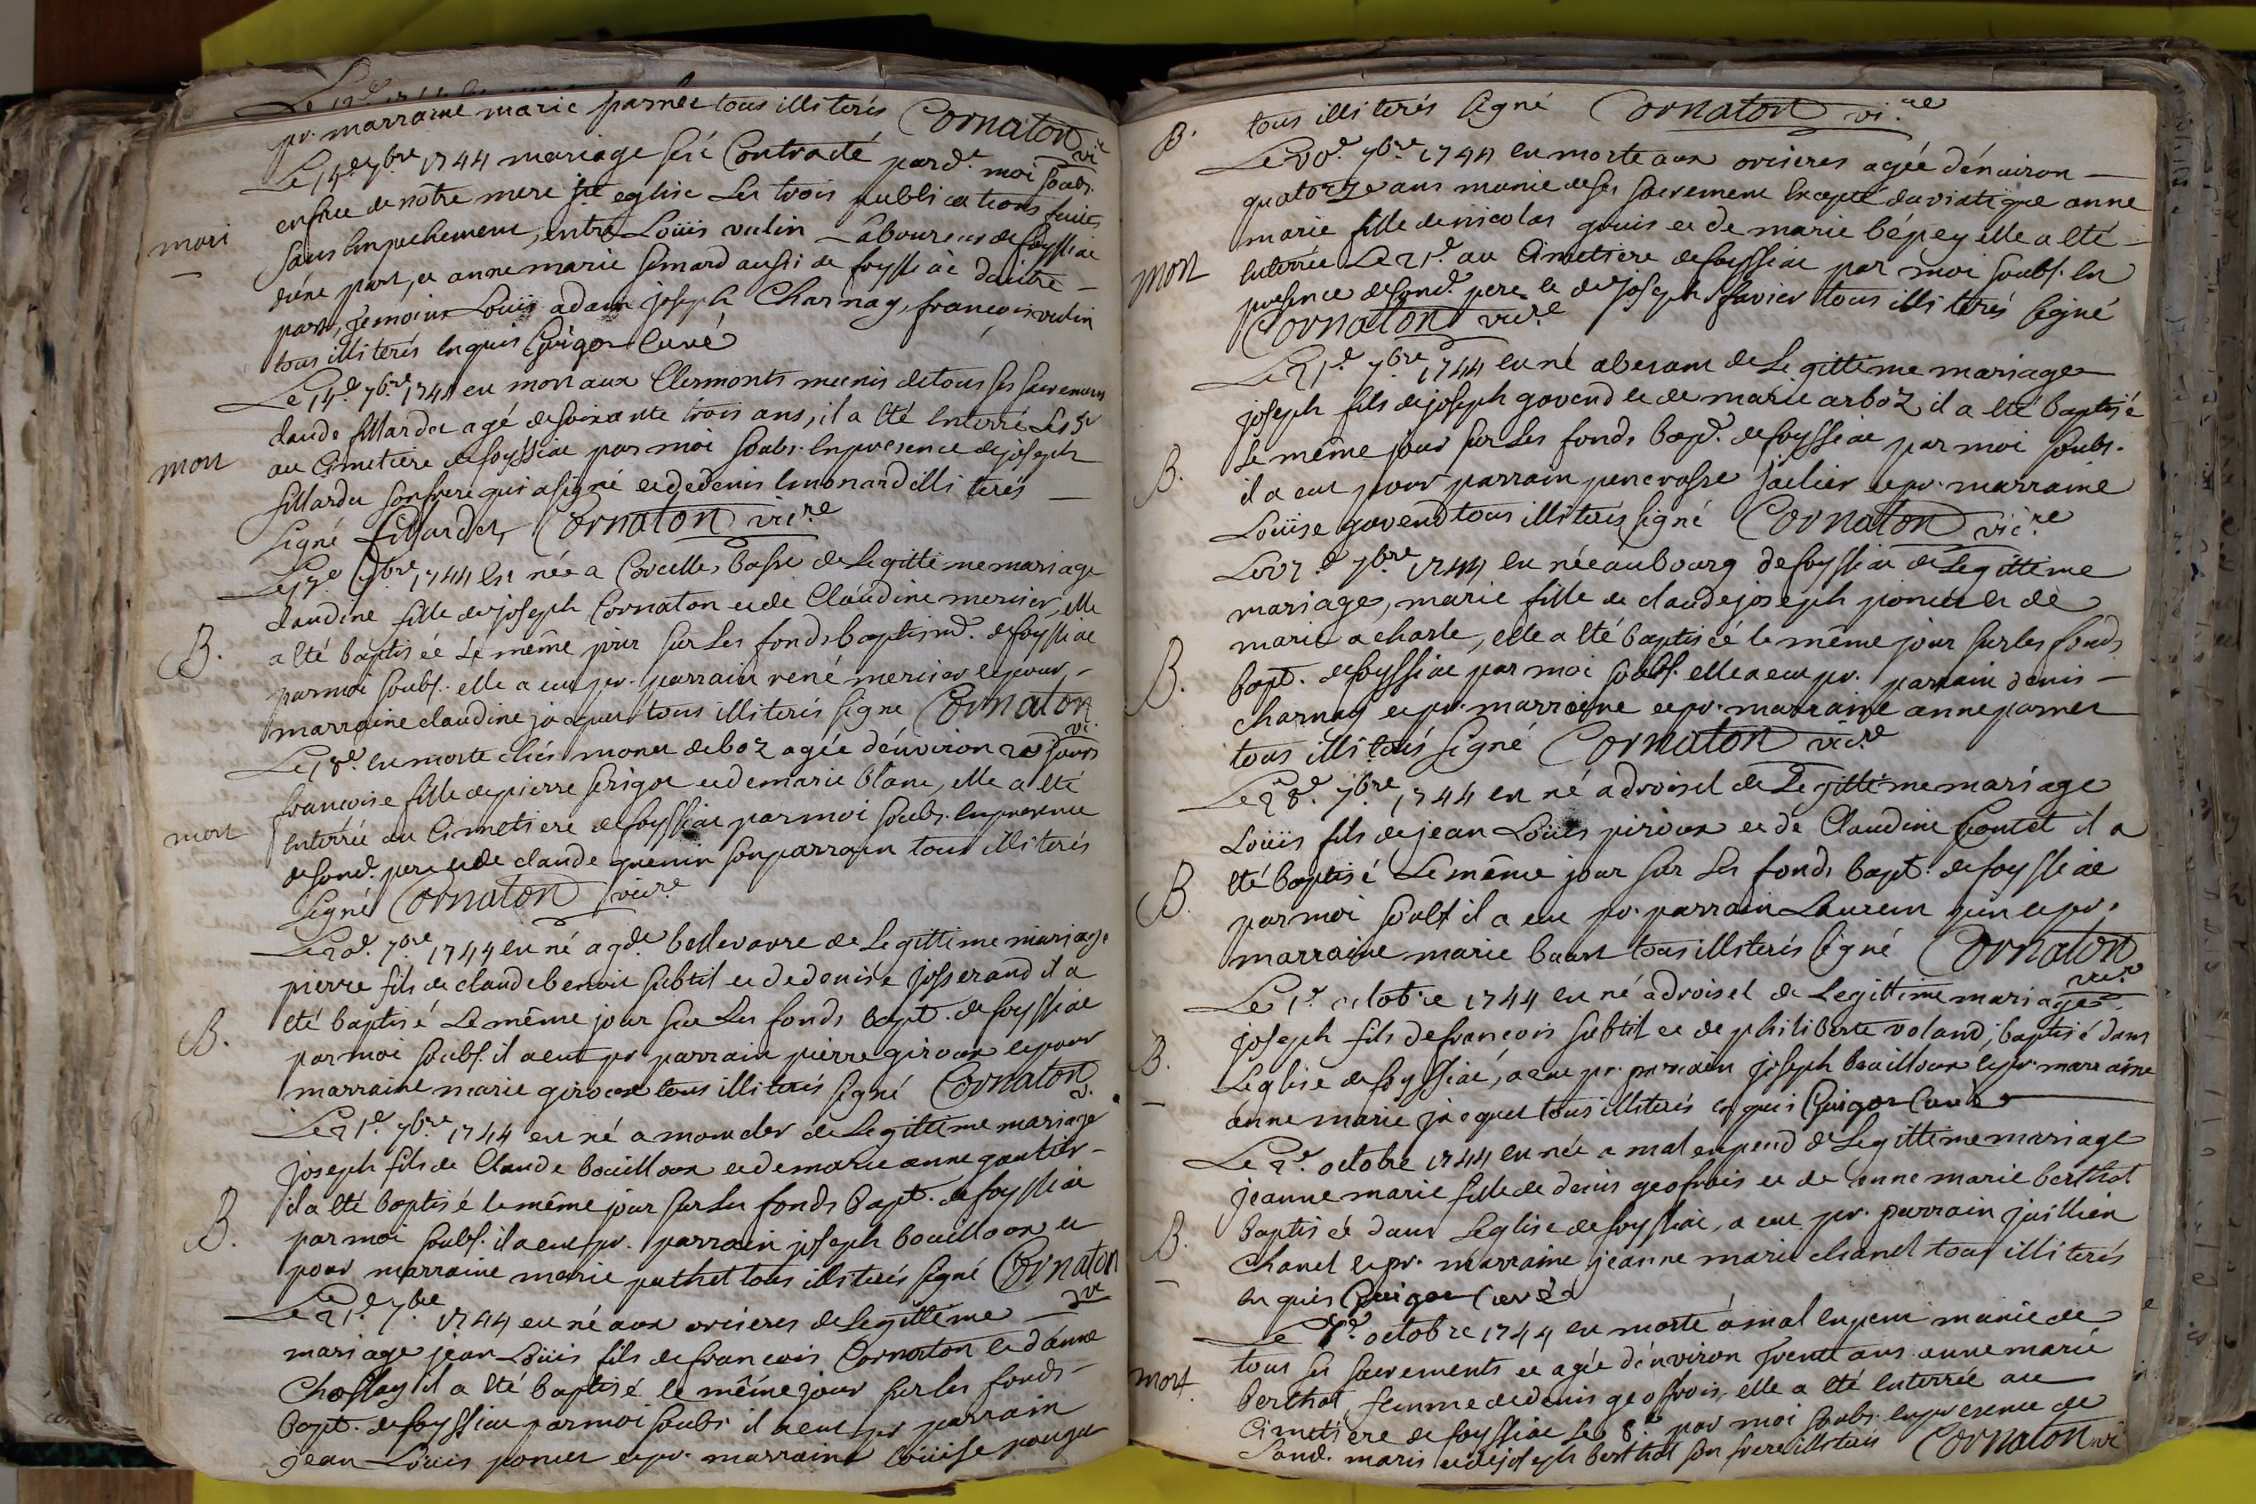 pr. marraine marie parnet tous illiterés Cornaton vi.re
Le 15.e 7bre 1744 mariage feü Contracté pard.e moi soubs.
en face de nôtre mere ste eglise Les trois publications faites
mari
sans empechement, entre Loüis vulin Laboureur de foyssiac
d'une part, et anne marie simard aussi de foyssiac d'autre
part, temoins Loüis adam joseph Charnay, francois vulin
tous illiterés enquis Guigot curé
Le 14.e 7bre 1744 est mort aux Clermonts munis de tous ses sacremens
claude fillardet agé de soixante trois ans, il a eté enterré Le 15e
mort
au Cimetiere de foyssiac par moi soubs. en presence de joseph
fillardet son frere qui a signé et de denis limonard illiterés
Signé fillardet, Cornaton vic.re
Le 17e 7bre 1744 est née a Corcelles basse de Legittime mariage
claudine fille de joseph Cornaton et de Claudine mercier, elle
B.
a eté baptisée Le même jour sur Les fonds baptism. de foyssiac
par moi soubs. elle a eu pr. parrain rené mercier et pour
marraine claudine jacquet tous illiterés signe Cornaton vi.
Le 18.e est morte chés monet deboz agée d'environ 20 jours
francoise fille de pierre serigot et de marie blanc, elle a eté
mort
enterrée au Cimetiere de foyssiac par moi soubs. en presence
de sond. pere et de claude guenin son parrain tous illiterés
Signé Cornaton vic.re
Le 20.e 7bre 1744 est né a gde bellevavre de Legittime mariage
pierre fils de claude benoit subtil et de denise josserand il a
B.
eté baptisé Le même jour sur Les fonds bapt. de foyssiac
par moi soubs. il a eu pr parrain pierre giroux et pour
marraine marie giroux tous illiterés signé Cornaton v.
Le 21.e 7bre 1744 est né a monclер de Legittime mariage
joseph fils de Claude bouilloux et de marie anne gautier
B.
il a eté baptisé le même jour sur Les fonds bapt. de foyssiac
par moi soubs. il a eu pr. parrain joseph bouilloux et
pour marraine marie puthet tous illiterés signé Cornaton vi
Le 21.e 7bre 1744 est né aux orcieres de Legittime
mariage jean Loüis fils de francois Cornaton et d'anne
Chossay il a eté baptisé le même jour sur les fonds
bapt. de foyssiac par moi soubs. il a eu pr parrain
jean Loüis poncet et pr. marraine Loüise
B.
tous illiterés signé Cornaton vi.re
Le 20.e 7bre 1744 est morte aux orcieres agée d'environ
quatorze ans munie de ses sacremens Excepté du viatique anne
marie fille de nicolas gouis et de marie bépey elle a eté
mort
enterrée Le 21.e au Cimetiere de foyssiac par moi soubs. en
presence de sond. pere et de joseph favier tous illiterés signé
Cornaton vic.re
Le 21.e 7bre 1744 est né a besant de Legittime mariage
joseph fils de joseph gavend et de marie arboz, il a eté baptisé
B.
Le même jour sur Les fonds bapt. de foyssiac par moi soubs.
il a eu pour parrain pancrasse jaelier et pr. marraine
Loüise gavend tous illiterés signé Cornaton vic.re
Le 27.e 7bre 1744 est née au bourg de foyssiac de Legittime
mariage, marie fille de claude joseph poncet et de
marie acharle, elle a eté baptisée le même jour sur les fonds
B.
bapt. de foyssiac par moi soubs. elle a eu pr. parrain denis
charnay et pr. marraine et pr. marraine anne parnet
tous illiterés signé Cornaton vic.re
Le 28.e 7bre 1744 est né a droisel de Legittime mariage
Loüis fils de jean Loüis piroux et de Claudine Contet il a
B.
eté baptisé Le même jour sur Les fonds bapt. de foyssiac
par moi soubs il a eu pr. parrain Laurent juin et pr.
marraine marie buart tous illiterés signé Cornaton vic.re
Le 1.er octobre 1744 est né a droisel de Legittime mariage
joseph fils de francois subtil et de philiberte voland, baptisé dans
B.
Leglise de foyssiac, a eu pr. parrain joseph bouilloux et pr. marraine
anne marie jacquet tous illiterés enquis Guigot Curé
Le 2.e octobre 1744 est née a malenpend de Legittime mariage
jeanne marie fille de denis geofrois et de anne marie berthot
B.
baptisée dans Leglise de foyssiac, a eu pr. parrain juillien
Chanel et pr. marraine jeanne marie chanel tous illiterés
enquis Guigot Curé
Le 7.e octobre 1744 est morte a malenpent munie de
tous ses sacrements et agée d'environ trente ans anne marie
mort.
berthot, femme de denis geofrois, elle a eté enterrée au
Cimetiere de foyssiac Le 8.e par moi soubs. en presence de
Sond. maris et de joseph berthot son frere illiterés Cornaton vi